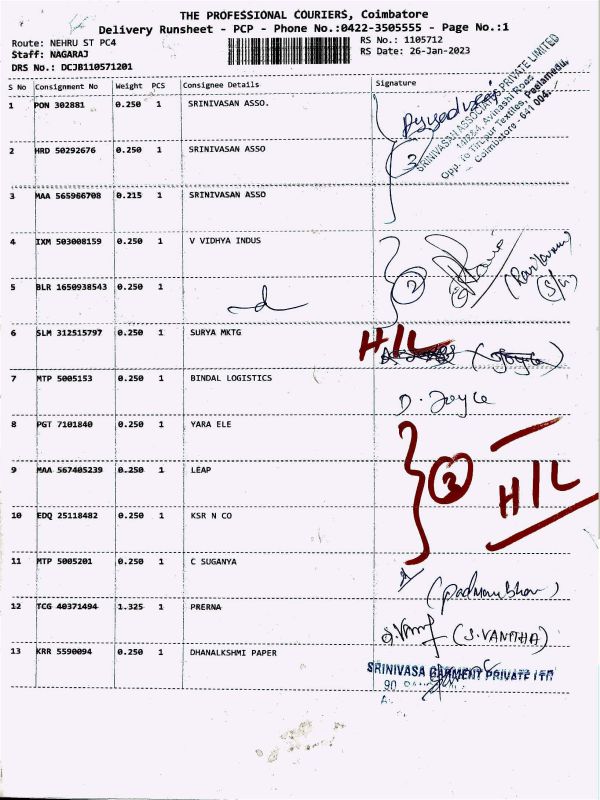 THE PROFESSIONAL COURIERS, Coimbatore
Delivery Runsheet - PCP - Phone No.:0422-3505555 - Page No.:1
Route: NEHRU ST PC4 RS No.: 1105712
Staff: NAGARAJ RS Date: 26-Jan-2023
DRS No.: DCJB110571201
S No Consignment No Weight PCS Consignee Details Signature
1 PON 302881 0.250 1 SRINIVASAN ASSO.
SRINIVASAN ASSOCIATES PRIVATE LIMITED
1428-4, Avinashi Road
Opp. To Tirupur Textiles, Peelamedu,
Coimbatore - 641 004.
2 HRD 50292676 0.250 1 SRINIVASAN ASSO
3
3 MAA 565966708 0.215 1 SRINIVASAN ASSO
4 IXM 503008159 0.250 1 V VIDHYA INDUS
5 BLR 1650938543 0.250 1
2
6 SLM 312515797 0.250 1 SURYA MKTG H/L
7 MTP 5005153 0.250 1 BINDAL LOGISTICS D. Joyce
8 PGT 7101840 0.250 1 YARA ELE
9 MAA 567405239 0.250 1 LEAP 3 H/L
10 EDQ 25118482 0.250 1 KSR N CO
11 MTP 5005201 0.250 1 C SUGANYA
12 TCG 40371494 1.325 1 PRERNA (S.VANITHA)
13 KRR 5590094 0.250 1 DHANALKSHMI PAPER
SRINIVASA GARMENT PRIVATE LTD
90